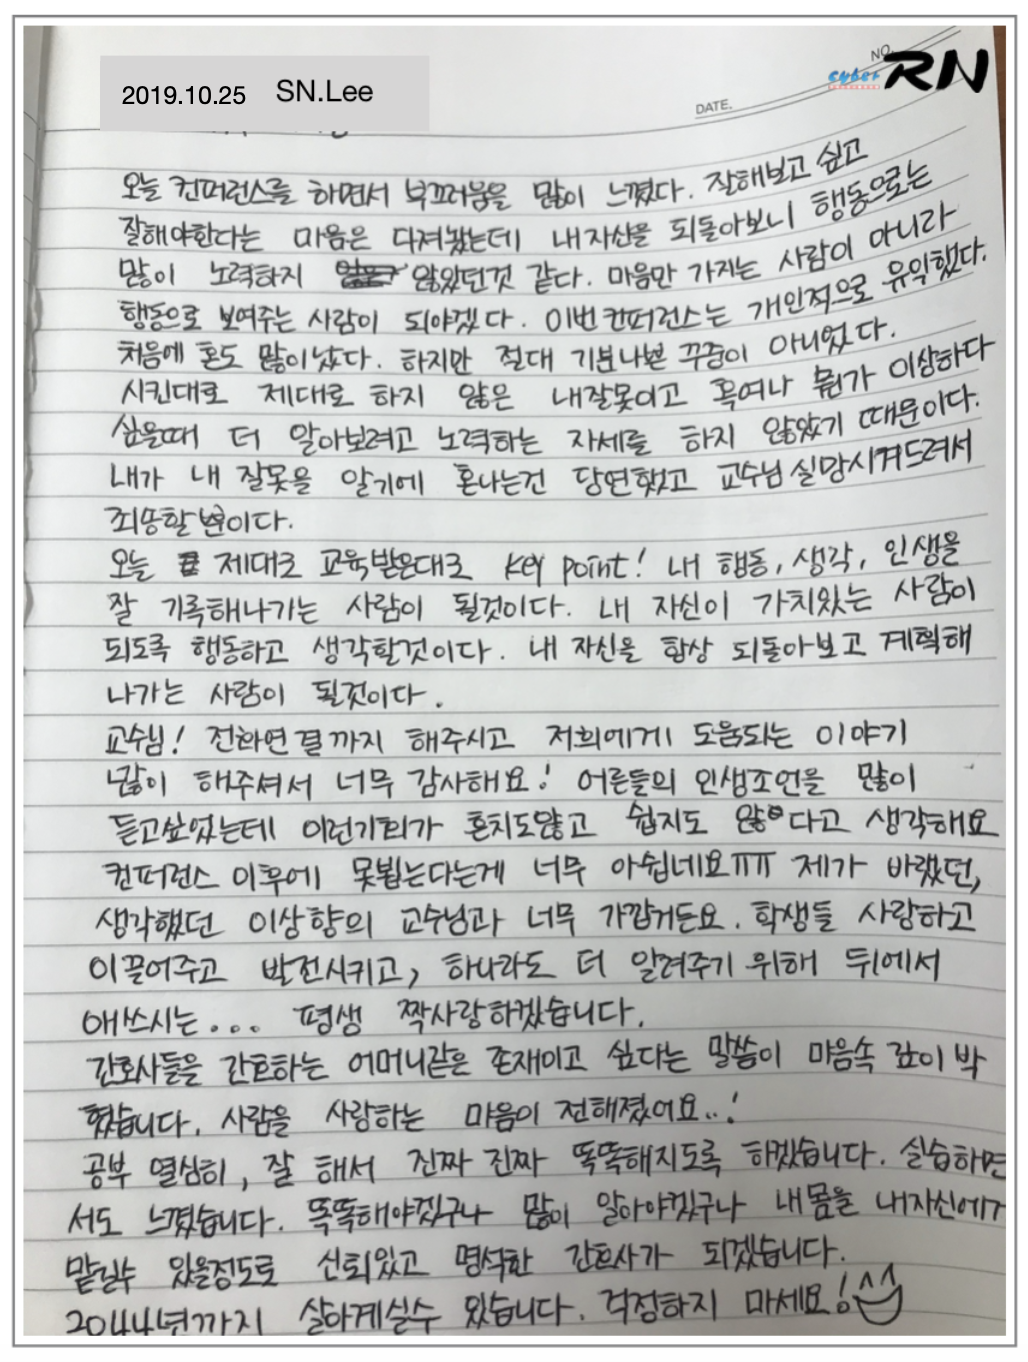 2019.10.25 SN.Lee
NO.
cyber RN
DATE.
오늘 컨퍼런스를 하면서 부끄러움을 많이 느꼈다. 잘해보고 싶고
잘해야한다는 마음은 다져놨는데 내자신을 되돌아보니 행동으로는
많이 노력하지 않았던것 같다. 마음만 가지는 사람이 아니라
행동으로 보여주는 사람이 되야겠다. 이번컨퍼런스는 개인적으로 유익했다.
처음에 혼도 많이났다. 하지만 절대 기분나쁜 꾸중이 아니었다.
시킨대로 제대로 하지 않은 내잘못이고 혹여나 뭔가 이상하다
싶을때 더 알아보려고 노력하는 자세를 하지 않았기 때문이다.
내가 내 잘못을 알기에 혼나는건 당연했고 교수님 실망시켜드려서
죄송할 뿐이다.
오늘 제대로 교육받은대로 key point! 내 행동, 생각, 인생을
잘 기록해나가는 사람이 될것이다. 내 자신이 가치있는 사람이
되도록 행동하고 생각할것이다. 내 자신을 항상 되돌아보고 계획해
나가는 사람이 될것이다.
교수님! 전화연결까지 해주시고 저희에게 도움되는 이야기
많이 해주셔서 너무 감사해요! 어른들의 인생조언을 많이
듣고싶었는데 이런기회가 흔치도않고 쉽지도 않다고 생각해요
컨퍼런스 이후에 못뵙는다는게 너무 아쉽네요ㅠㅠ 제가 바랬던,
생각했던 이상향의 교수님과 너무 가깝거든요. 학생들 사랑하고
이끌어주고 발전시키고, 하나라도 더 알려주기 위해 뒤에서
애쓰시는... 평생 짝사랑하겠습니다.
간호사들을 간호하는 어머니같은 존재이고 싶다는 말씀이 마음속 깊이 박
혔습니다. 사람을 사랑하는 마음이 전해졌어요..!
공부 열심히, 잘 해서 진짜 진짜 똑똑해지도록 하겠습니다. 실습하면
서도 느꼈습니다. 똑똑해야겠구나 많이 알아야겠구나 내몸을 내자신에게
맡길수 있을정도로 신뢰있고 명석한 간호사가 되겠습니다.
2044년까지 살아계실수 있습니다. 걱정하지 마세요!^^